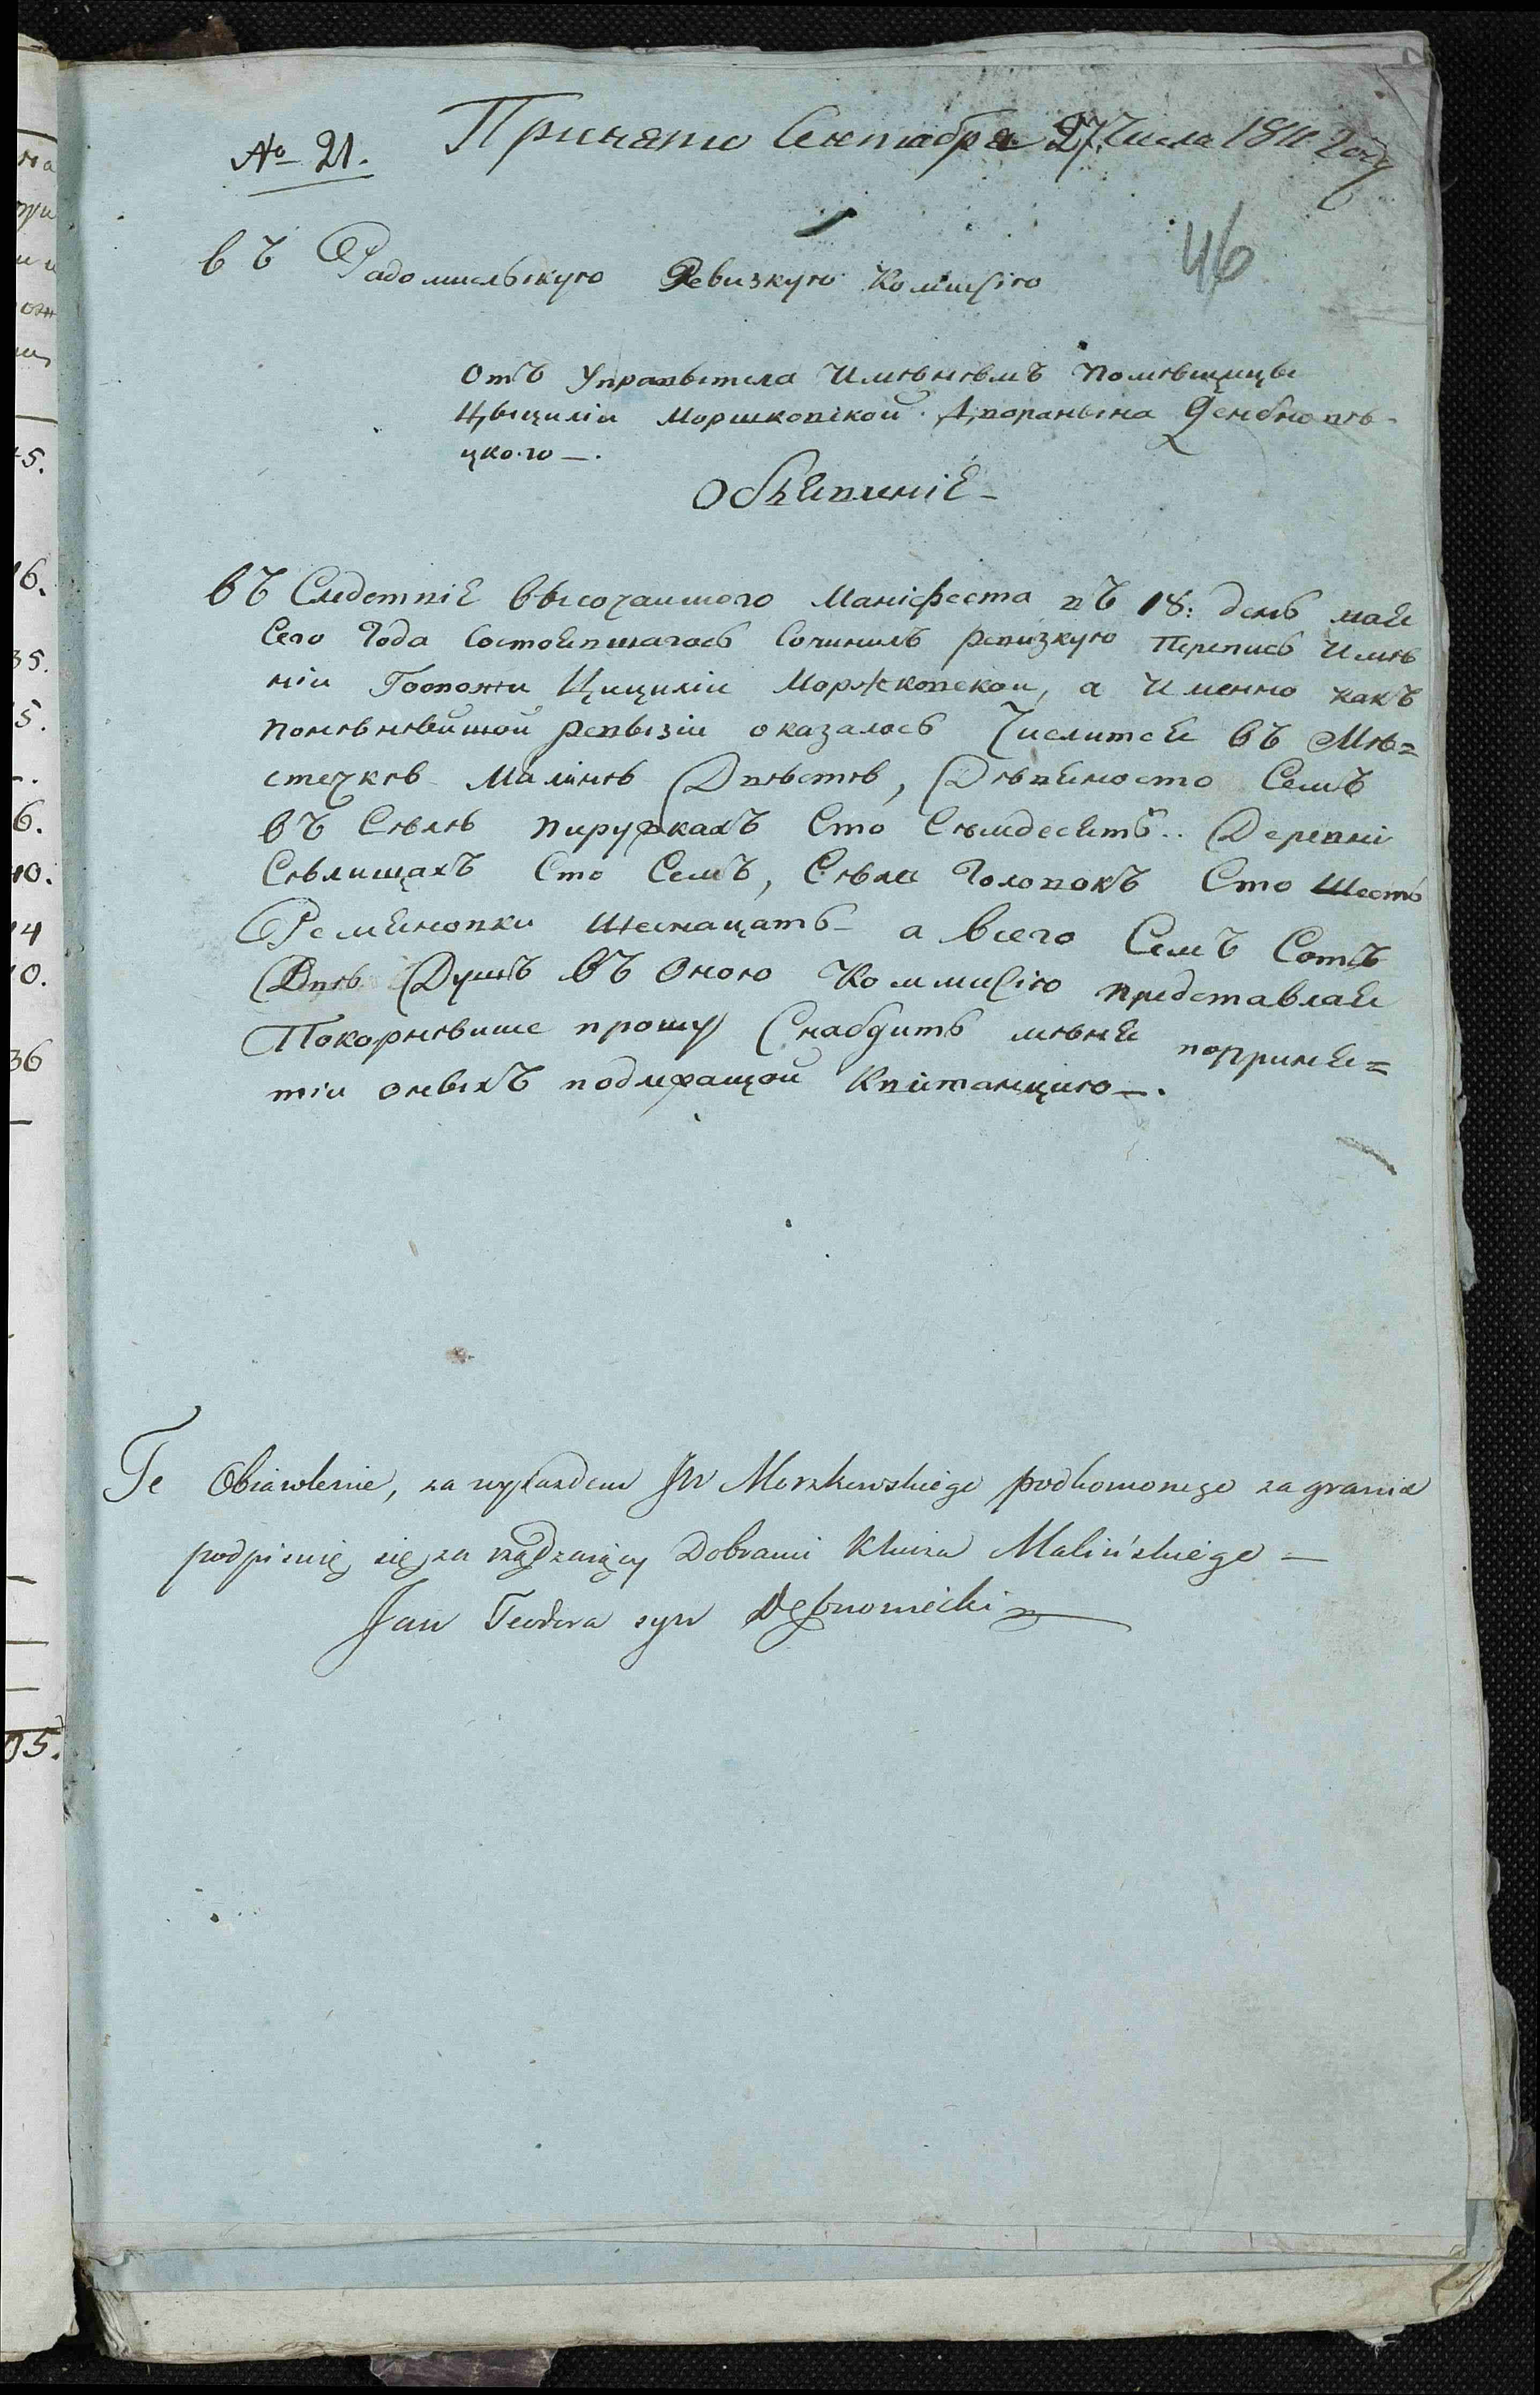 Принято Сентабра 27. Числа 1811 году
№ 21.
46
въ Радомисльскую Ревизкую Комисію
отъ Управытела Имѣнѣмъ Помѣщицы
Цыциліи Моршковской Дворанына Денбновѣ-
цкого —.
Обьевленіе —
въ Следствіе высочаишого Маніфеста въ 18: день мае
Сего Года Состоевшагось Сочинилъ ревизкую Перепись Имѣ
ніи Госпожи Цицилии Моржковскои, а Именно какъ
понѣнѣйшой ревызіи оказалось Числитсе въ Мѣ=
стечкѣ Малінѣ Двѣстѣ, Девеносто Семъ
въ Сѣлѣ пиружкахъ Сто Сѣмдесеть.. Деревни
Сѣлищахъ Сто Семъ, Сѣла Головокъ Сто Шесть
Ремѣновки Шеснацать — а всего Семъ Сотъ
Двѣ Душъ въ Оною Коммисію представлае
Покорнѣише прошу Снабдить мѣне поприне=
тіи оныхъ подлежащой Квитанцию —.
Te Obiawlenie, za wyiazdem JW Morzkowskiego podkomorzego za granice
podpisuię się za rządzaiący Dobrami Klucza Malińskiego —
Jan Teodora syn Dębnowiecki
15.
16.
35.
5.
6.
10.
14
10.
36
05.